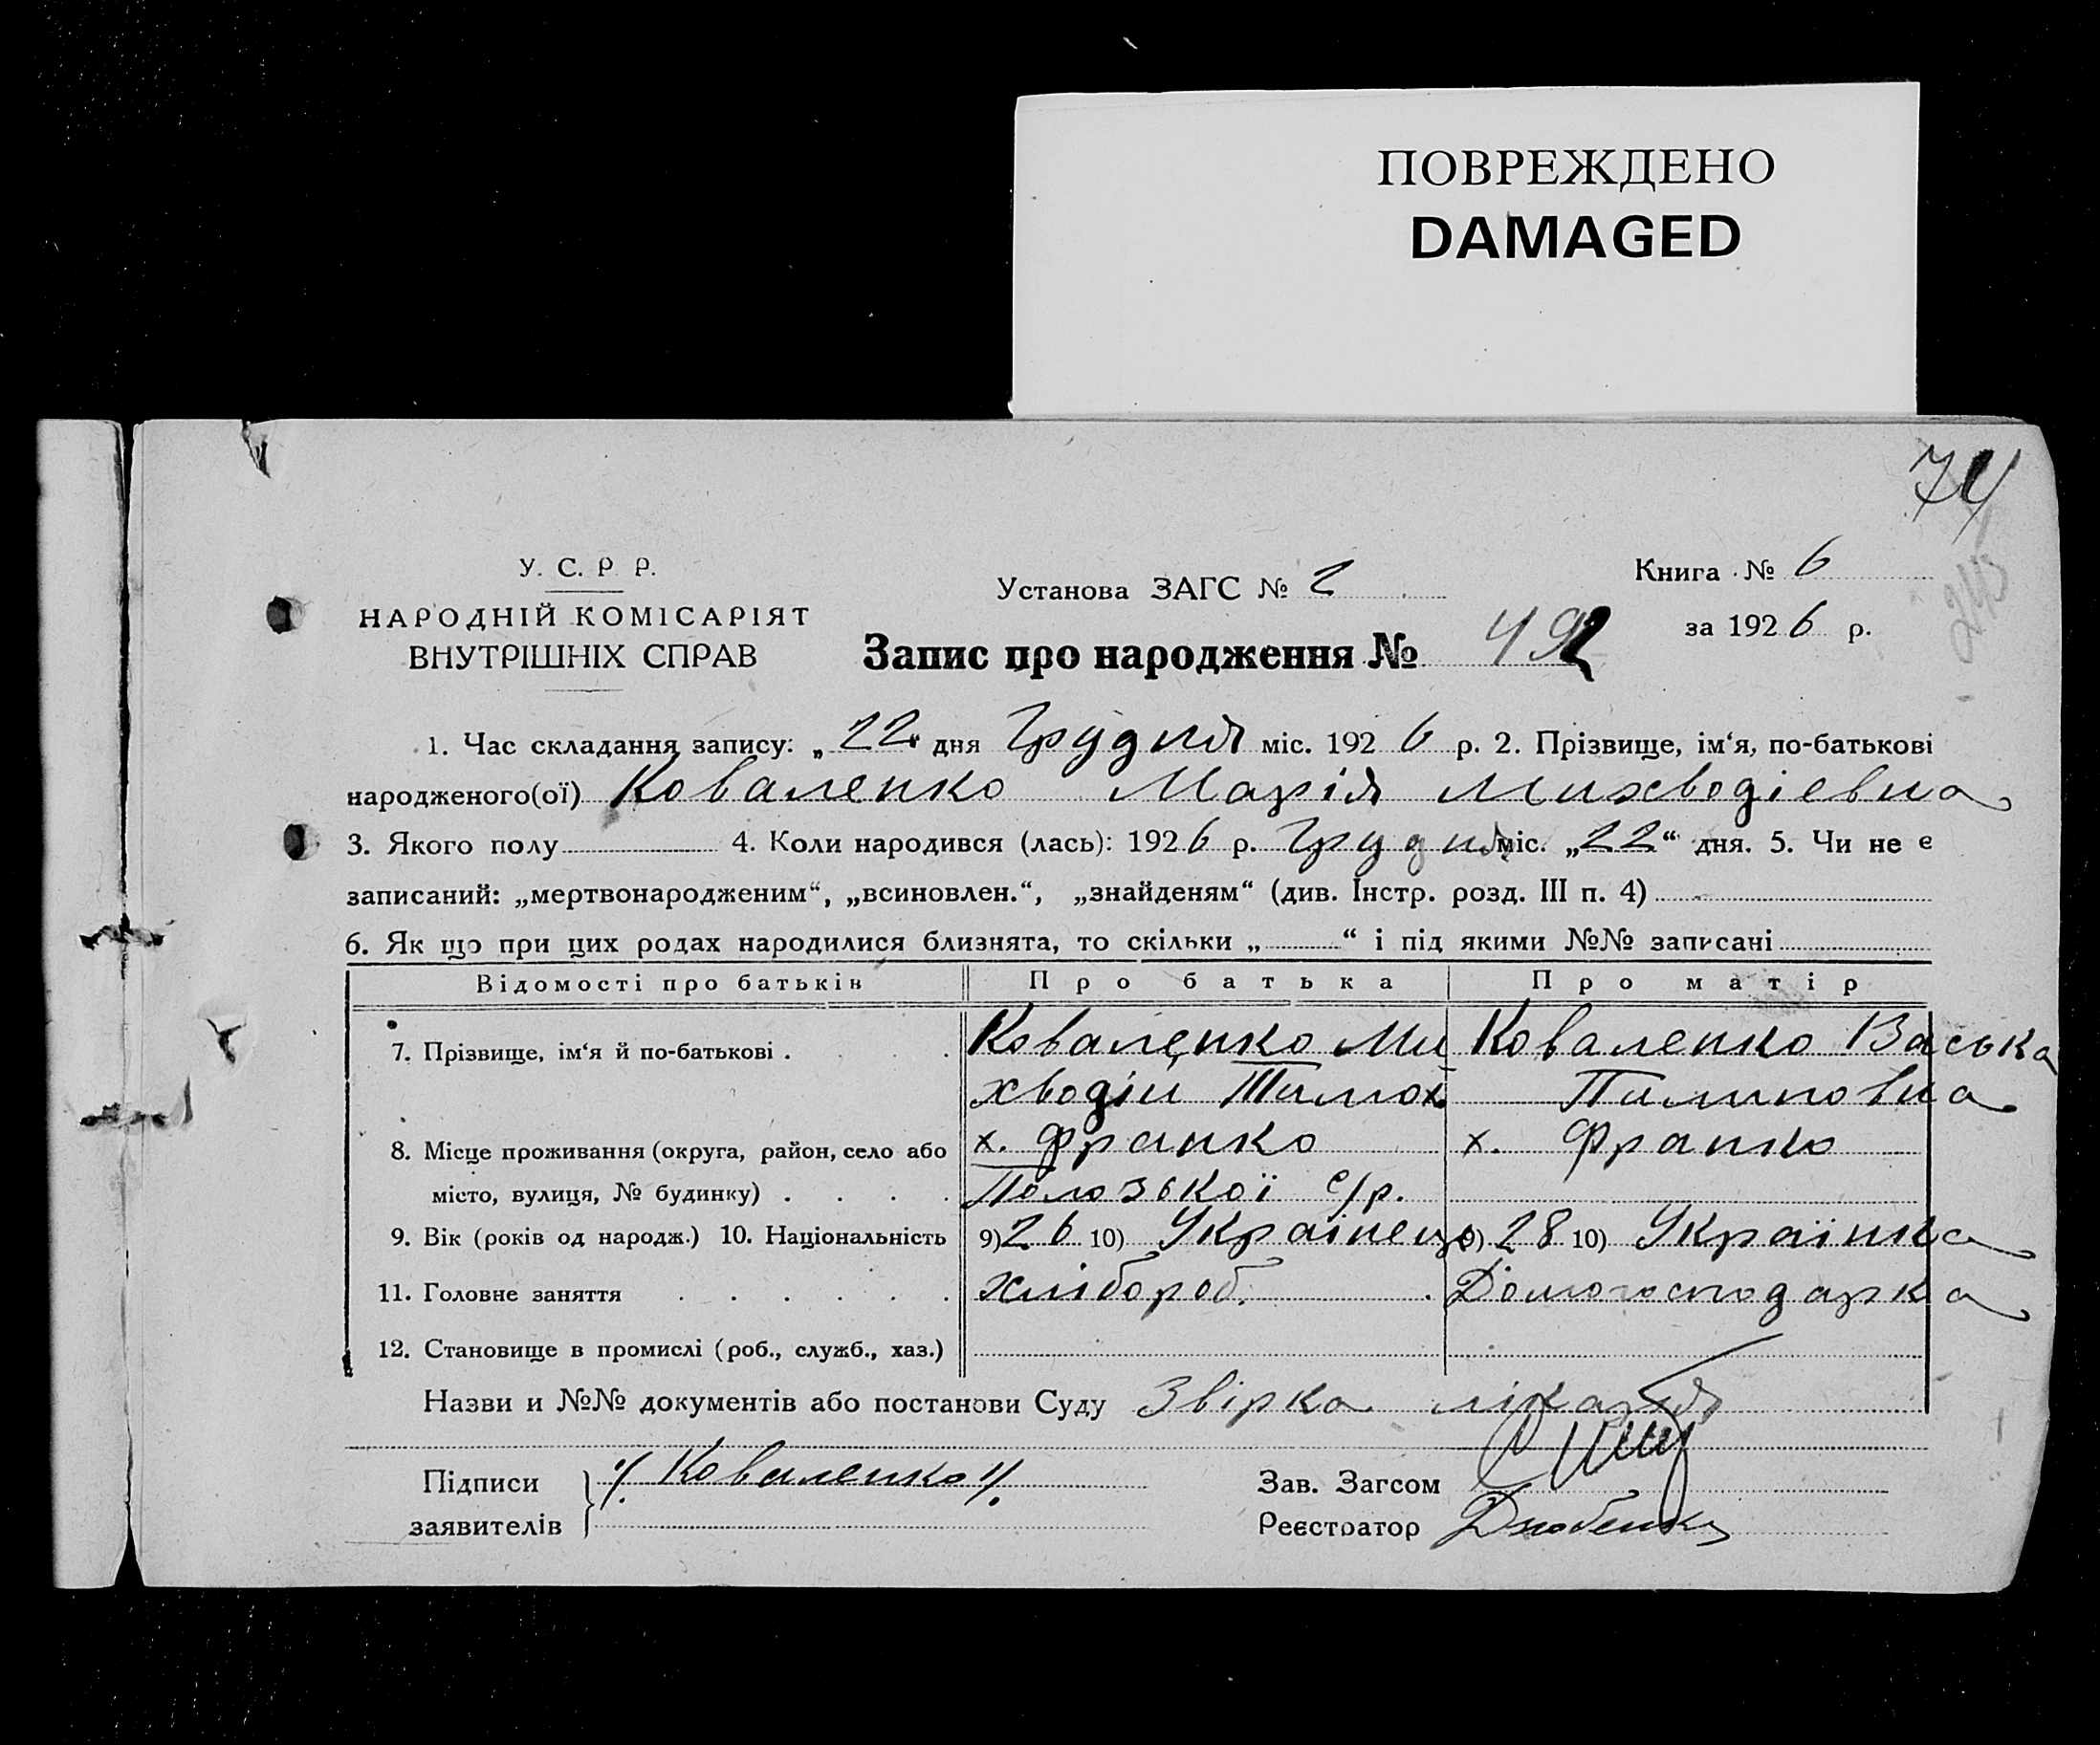 ПОВРЕЖДЕНО
DAMAGED
74
У. С. Р. Р.
НАРОДНІЙ КОМІСАРІЯТ
ВНУТРІШНІХ СПРАВ
Установа ЗАГС № 2
Книга № 6
за 1926 р.
Запис про народження № 492
1. Час складання запису: „22 дня Грудня міс. 1926 р. 2. Прізвище, ім‘я, по-батькові
народженого(ої) Коваленко Марія Михводіевна
3. Якого полу 4. Коли народився (лась): 1926 р. Грудня міс. „22“ дня. 5. Чи не є
записаний: „мертвонародженим“, „всиновлен.“, „знайденям“ (див. Інстр. розд. III п. 4)
6. Як що при цих родах народилися близнята, то скільки „ “ і під якими №№ записані
Відомості про батьків Про батька Про матір
7. Прізвище, ім‘я й по-батькові . Коваленко Ми Коваленко Васька
хводій Тимох. Пилиповна
8. Місце проживання (округа, район, село або х. Франко х. Франко
місто, вулиця, № будинку) . Полозької с/р.
9. Вік (років од народж.) 10. Національність 9) 26 10) Українець 9) 28 10) Українка
11. Головне заняття хлібороб. Домогосподарка
12. Становище в промислі (роб., служб., хаз.)
Назви и №№ документів або постанови Суду Звірка лікаря
Підписи заявителів Коваленко
Зав. Загсом
Реєстратор